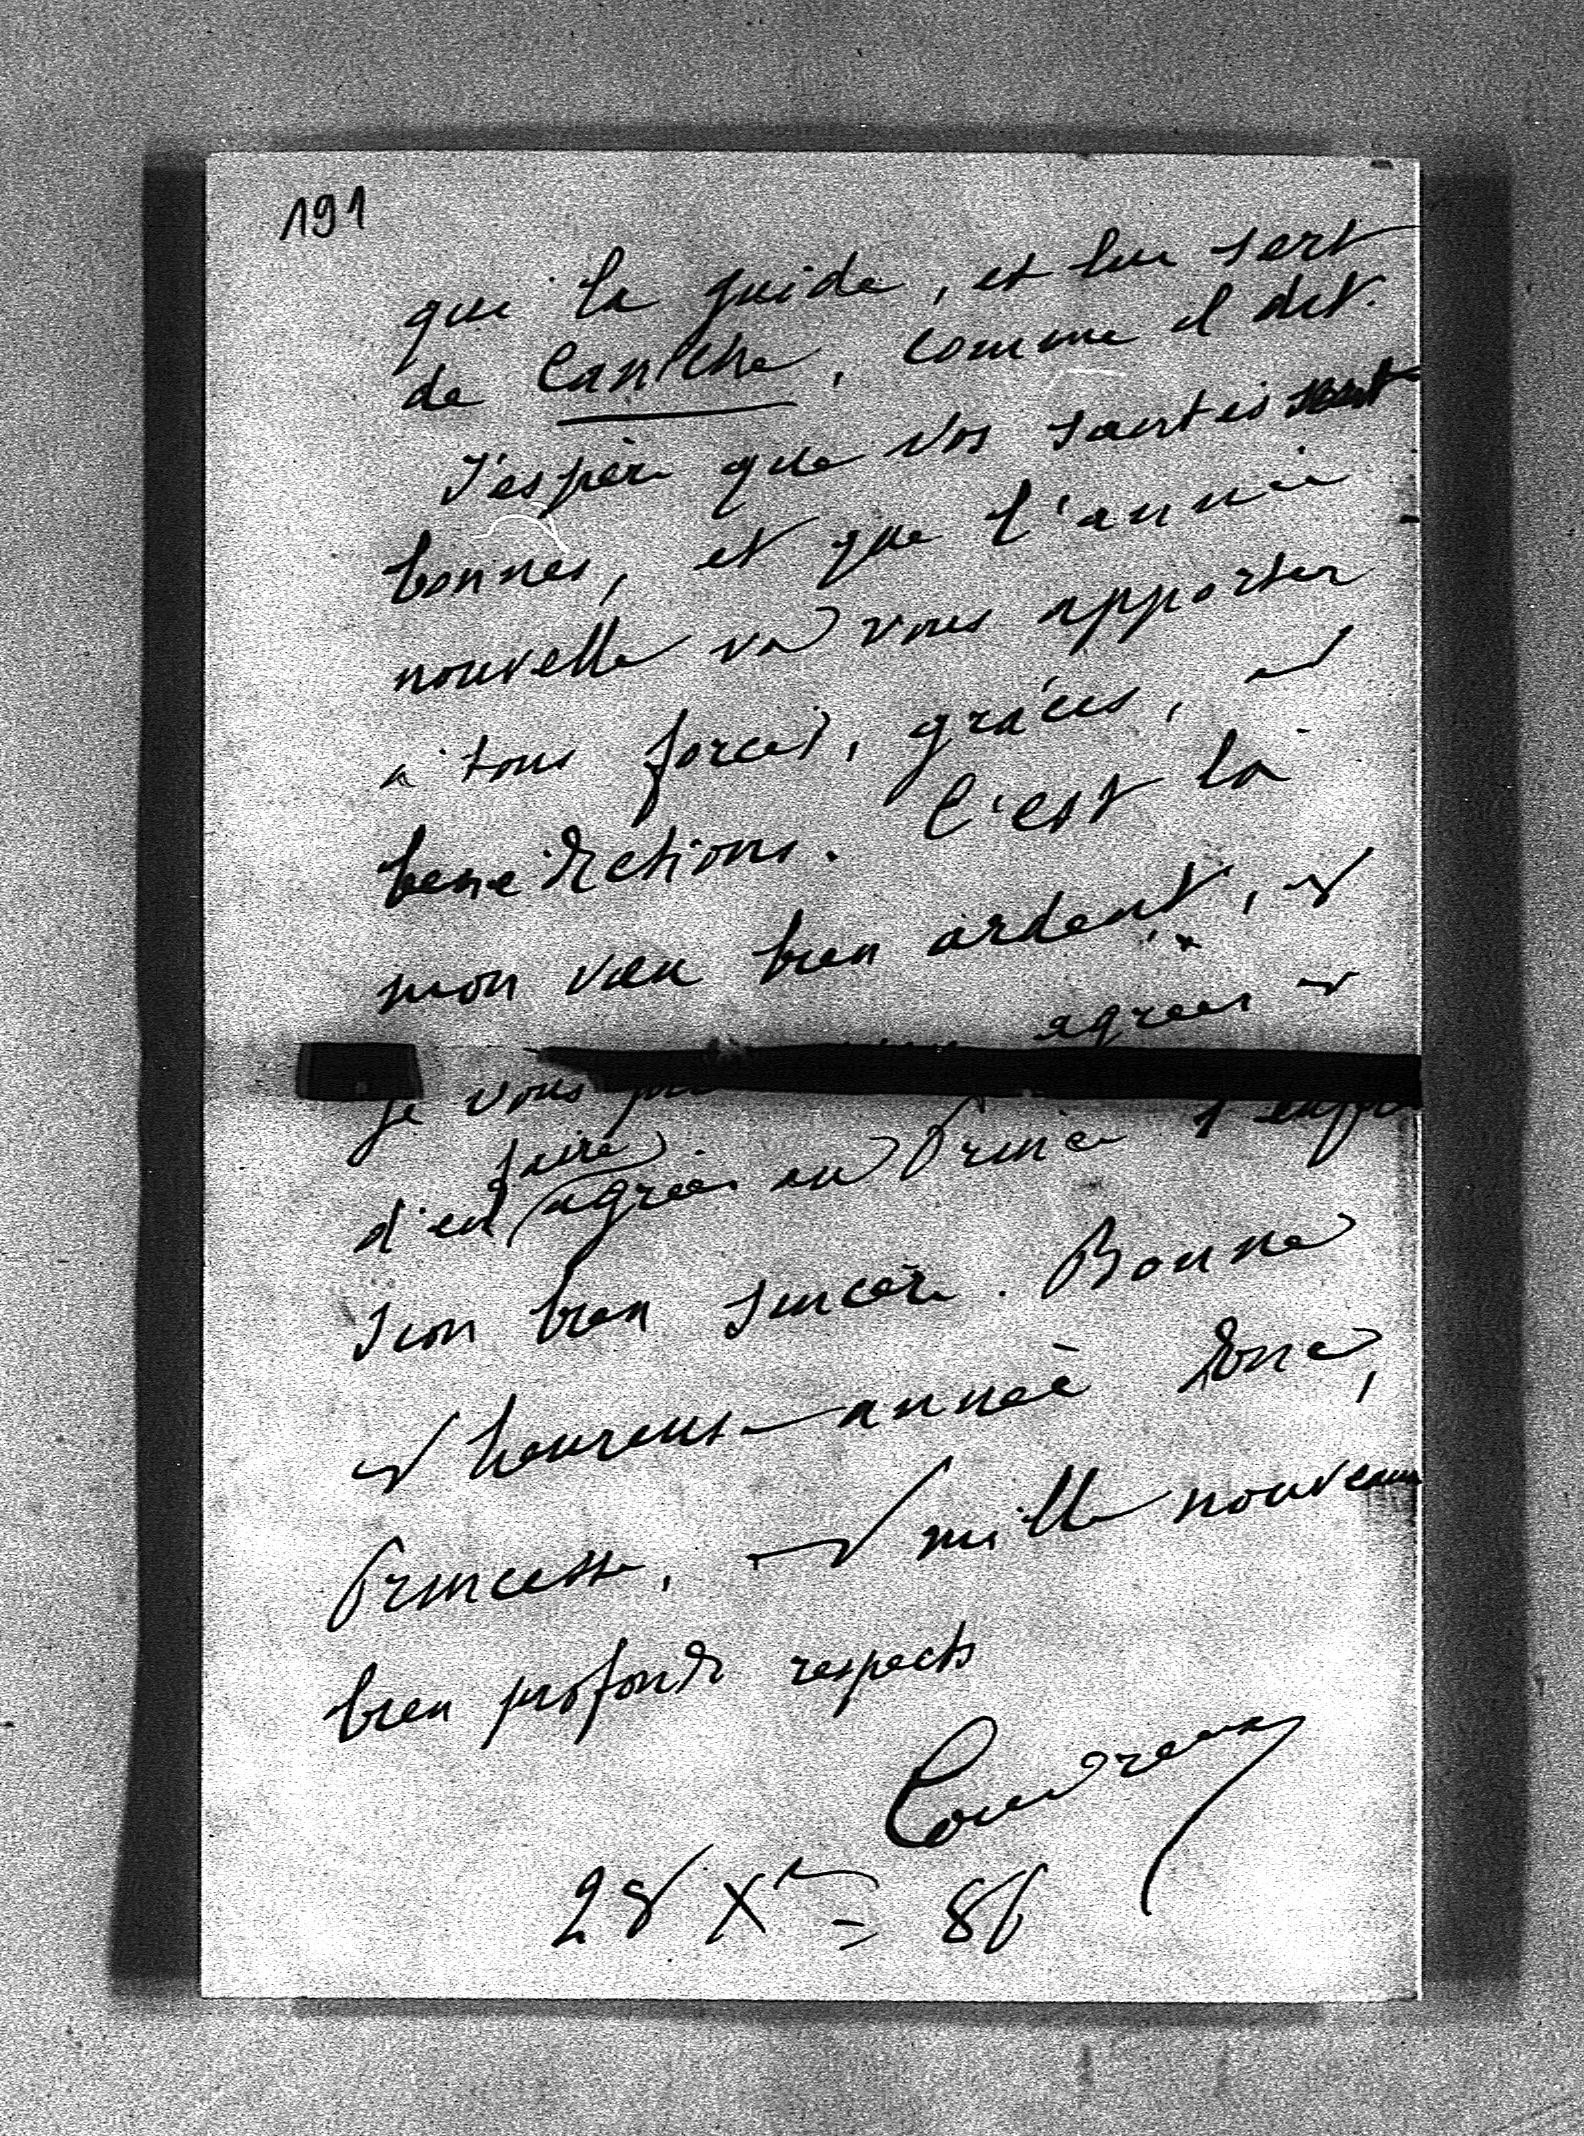 191
qui la guide, et lui sert
de Caniche, comme il dit.
J'espère que vos santés sont
bonnes, et que l'année
nouvelle va vous apporter
à tous forces, grâces, et
benedictions. C'est là
mon vœu bien ardent, et
je vous prie agréer et
d'en faire agréer au Prince l'expres
sion bien sincère. Bonne
et heureuse année donc,
Princesse, et mille nouveaux
bien profonds respects
Couvreux
28 Xre = 86